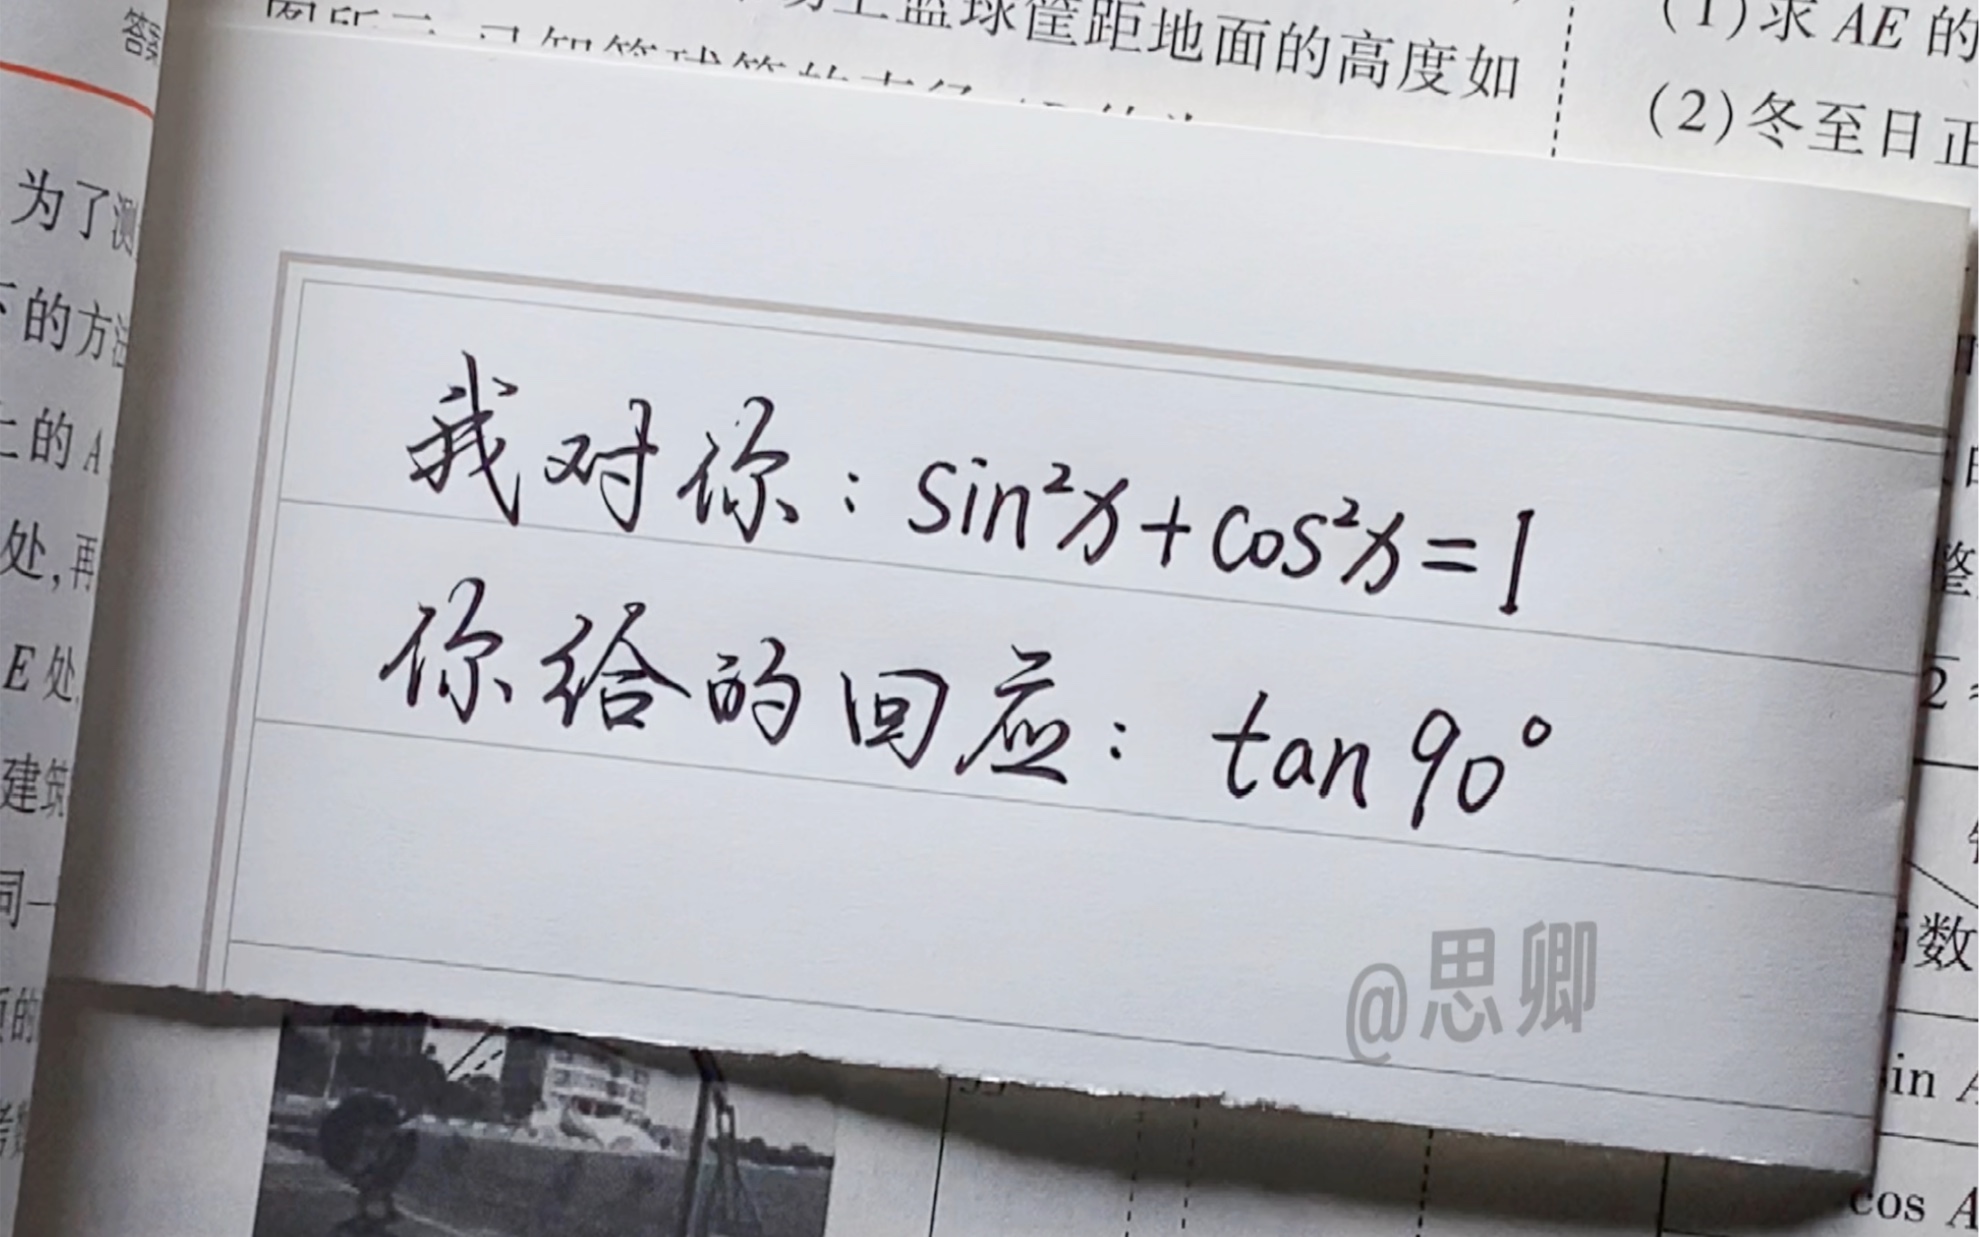 答案
篮球筐距地面的高度如
(1)求 AE 的
(2)冬至日正
为了测
下的方法
上的 A
处,再
E 处
建筑
同一
我对你：sin²x+cos²x=1
你给的回应：tan 90°
@思卿
整
2
数
sin A
cos A